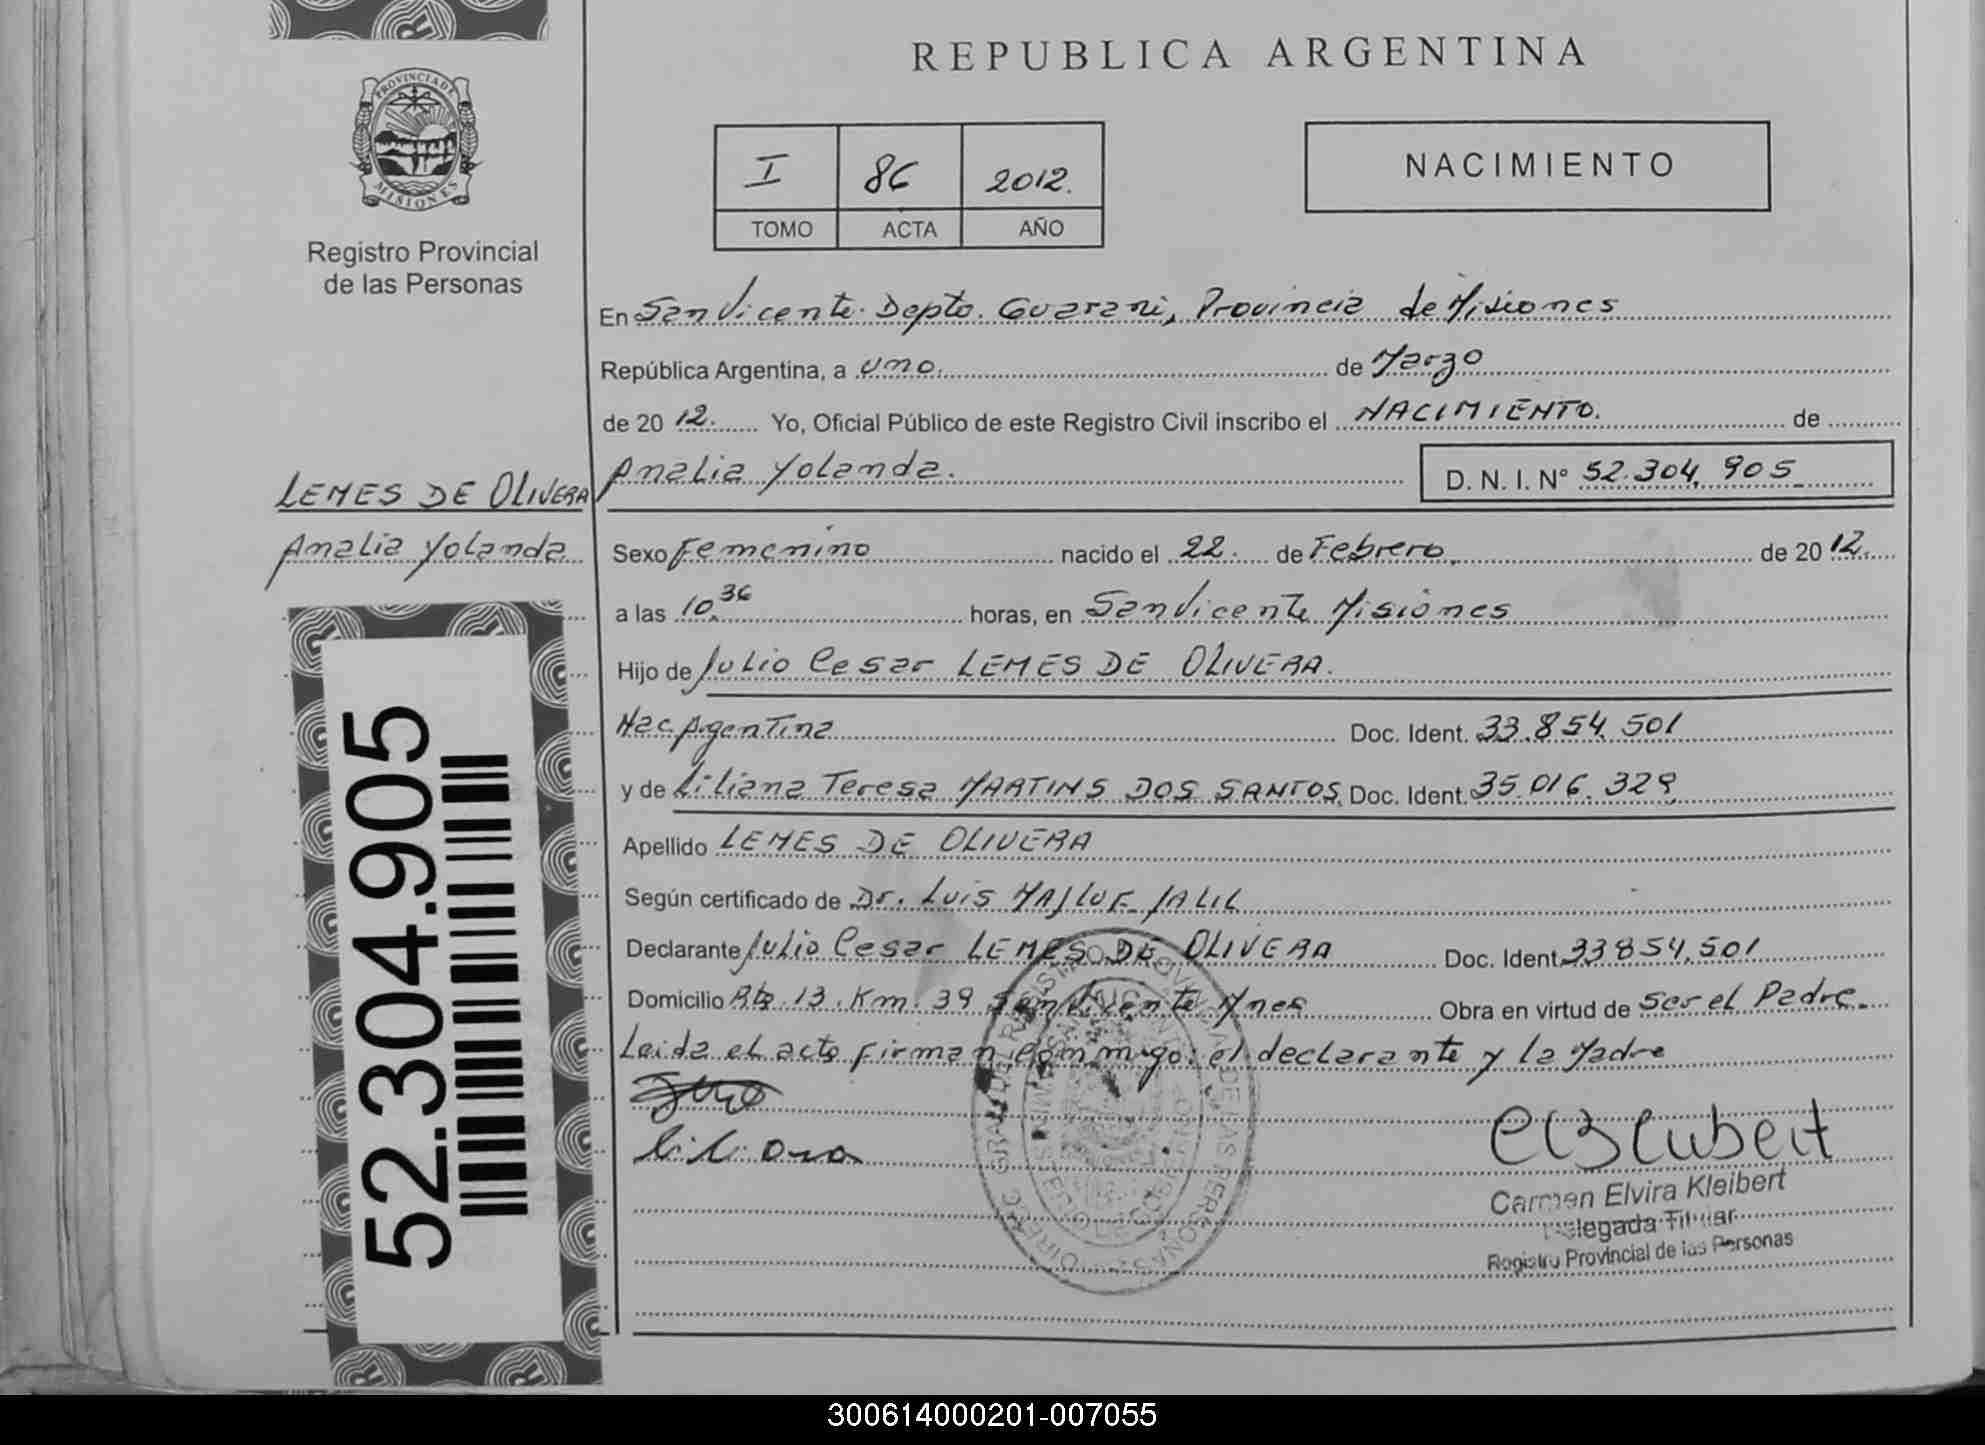 REPUBLICA ARGENTINA
PROVINCIA DE
MISIONES
Registro Provincial
de las Personas
I 86 2012.
TOMO ACTA AÑO
NACIMIENTO
En San Vicente. Depto. Guarani, Provincia de Misiones
República Argentina, a uno. de Marzo
de 20 12. Yo, Oficial Público de este Registro Civil inscribo el NACIMIENTO. de
Analia Yolanda. D. N. I. Nº 52.304.905
LEMES DE OLIVERA
Analia Yolanda
Sexo Femenino nacido el 22. de Febrero de 20 12.
a las 10.36 horas, en San Vicente Misiones
Hijo de Julio Cesar LEMES DE OLIVERA.
Nac Agentina Doc. Ident. 33.854.501
y de Liliana Teresa MARTINS DOS SANTOS, Doc. Ident. 35.016.329
Apellido LEMES DE OLIVERA
Según certificado de Dr. Luis JALIL
Declarante Julio Cesar LEMES DE OLIVERA Doc. Ident. 33854.501
Domicilio Rta. 13. Km. 39 San Vicente Mnes Obra en virtud de Ser el Padre.
Leida el acta firman conmigo: el declarante y la Madre
Liliana
Carmen Elvira Kleibert
Delegada Titular
Registro Provincial de las Personas
52.304.905
300614000201-007055